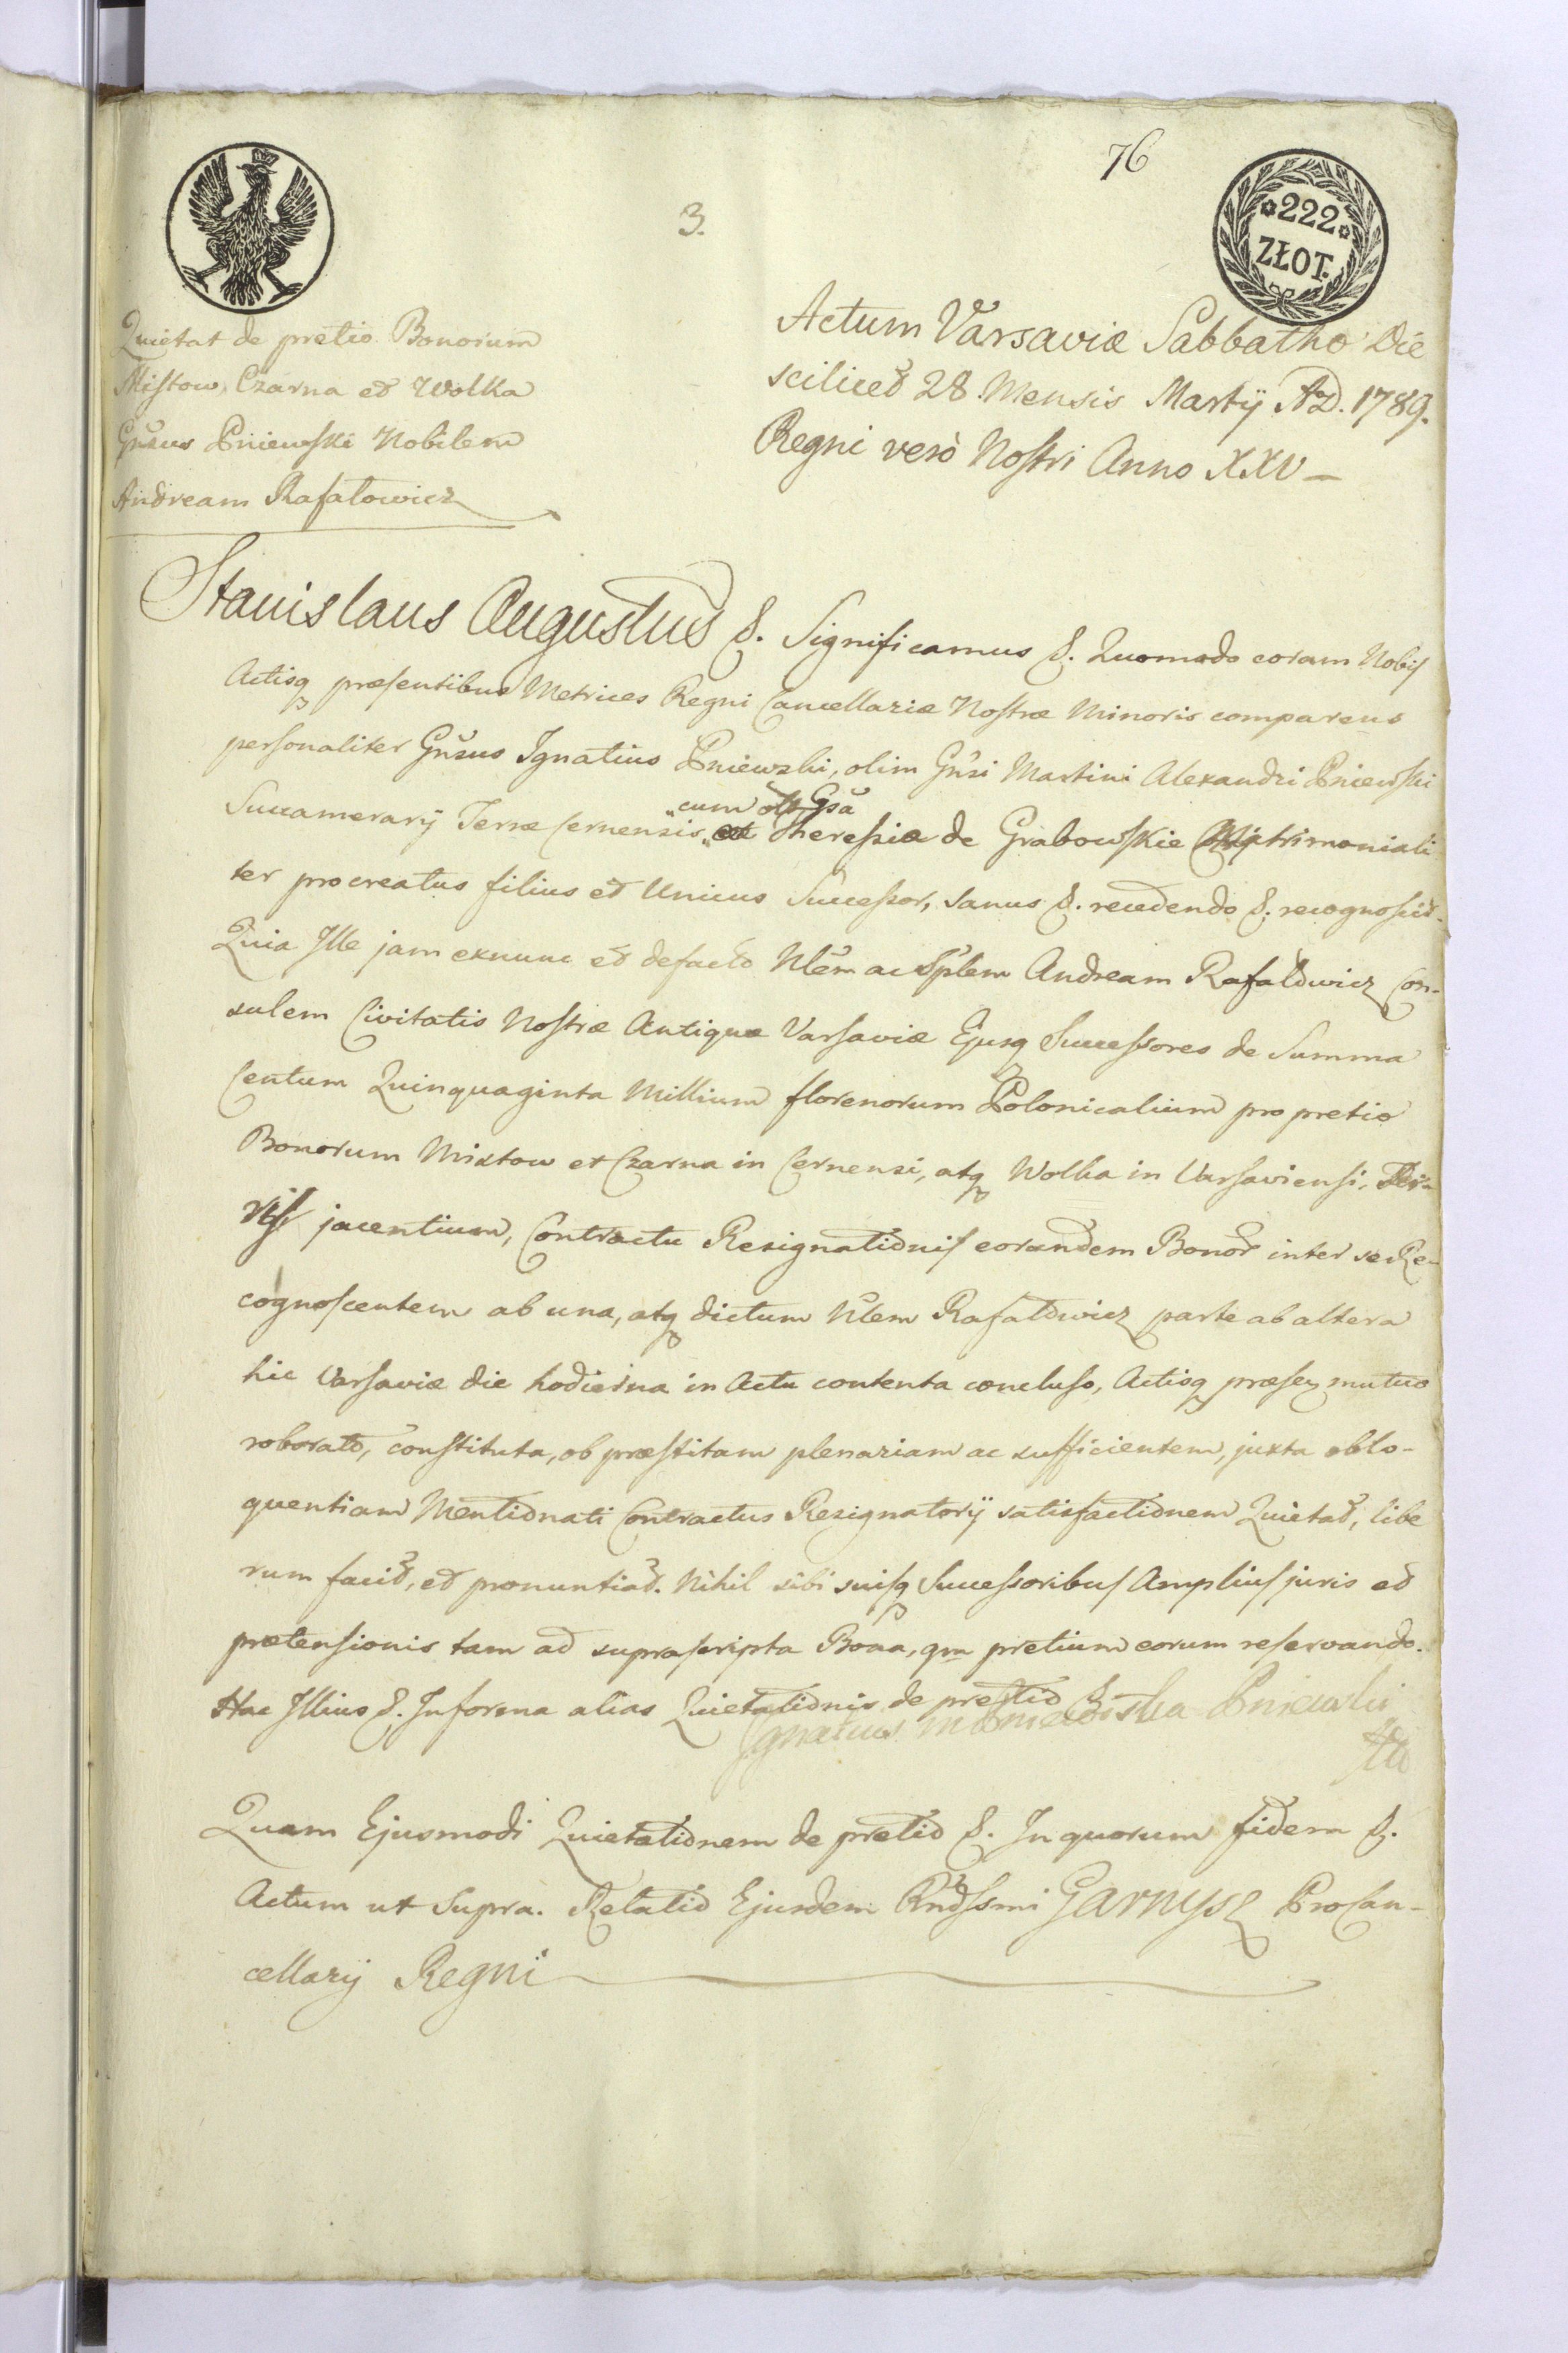 76
3.
222
ZŁOT.
Quietat de pretio Bonorum
Mistow, Czarna et Wolka
Gnsus Pniewski Nobilem
Andream Rafałowicz
Actum Varsaviæ Sabbatho Die
scilicet 28 Mensis Martij AD. 1789.
Regni verò Nostri Anno XXV
Stanislaus Augustus &. Significamus &. Quomodo coram Nobis
Actisq præsentibus Metrices Regni Cancellariæ Nostræ Minoris comparens
personaliter Gnsus Ignatius Pniewski, olim Gnsi Martini Alexandri Pniewski
cum Gsa
Succamerarij Terræ Cernensis Theresia de Grabowskie Matrimoniali
ter procreatus filius et Unicus Successor, sanus &. recedendo &. recognoscit.
Quia Ille jam exnunc et defacto Nlem ac Splem Andream Rafałowicz Con-
sulem Civitatis Nostræ Antiquæ Varsaviæ Ejusq Successores de Summa
Centum Quinquaginta Millium florenorum Polonicalium pro pretio
Bonorum Mixtow et Czarna in Cernensi, atq Wolka in Varsaviensi, Ter-
ris jacentium, Contractu Resignationis eorundem Bonor inter se Re-
cognoscentem ab una, atq dictum Nlem Rafałowicz parte ab altera
hic Varsaviæ die hodierna in Actu contenta concluso, Actisq præsen mutuo
roborato, constituta, ob præstitam plenariam ac sufficientem, juxta oblo-
quentiam Mentionati Contractus Resignatorij satisfactionem Quietat, libe
rum facit, et pronuntiat. Nihil sibi suisq Successoribus Amplius juris et
prætensionis tam ad suprascripta Bona, qm pretium eorum reservando.
Hac Illius &. In forma alias Quietationis de pretio &
Ignatius Pniewski
Quam Ejusmodi Quietationem de pretio &. In quorum fidem &.
Actum ut Supra. Relatio Ejusdem Rndssmi Garnysz ProCan-
cellarij Regni